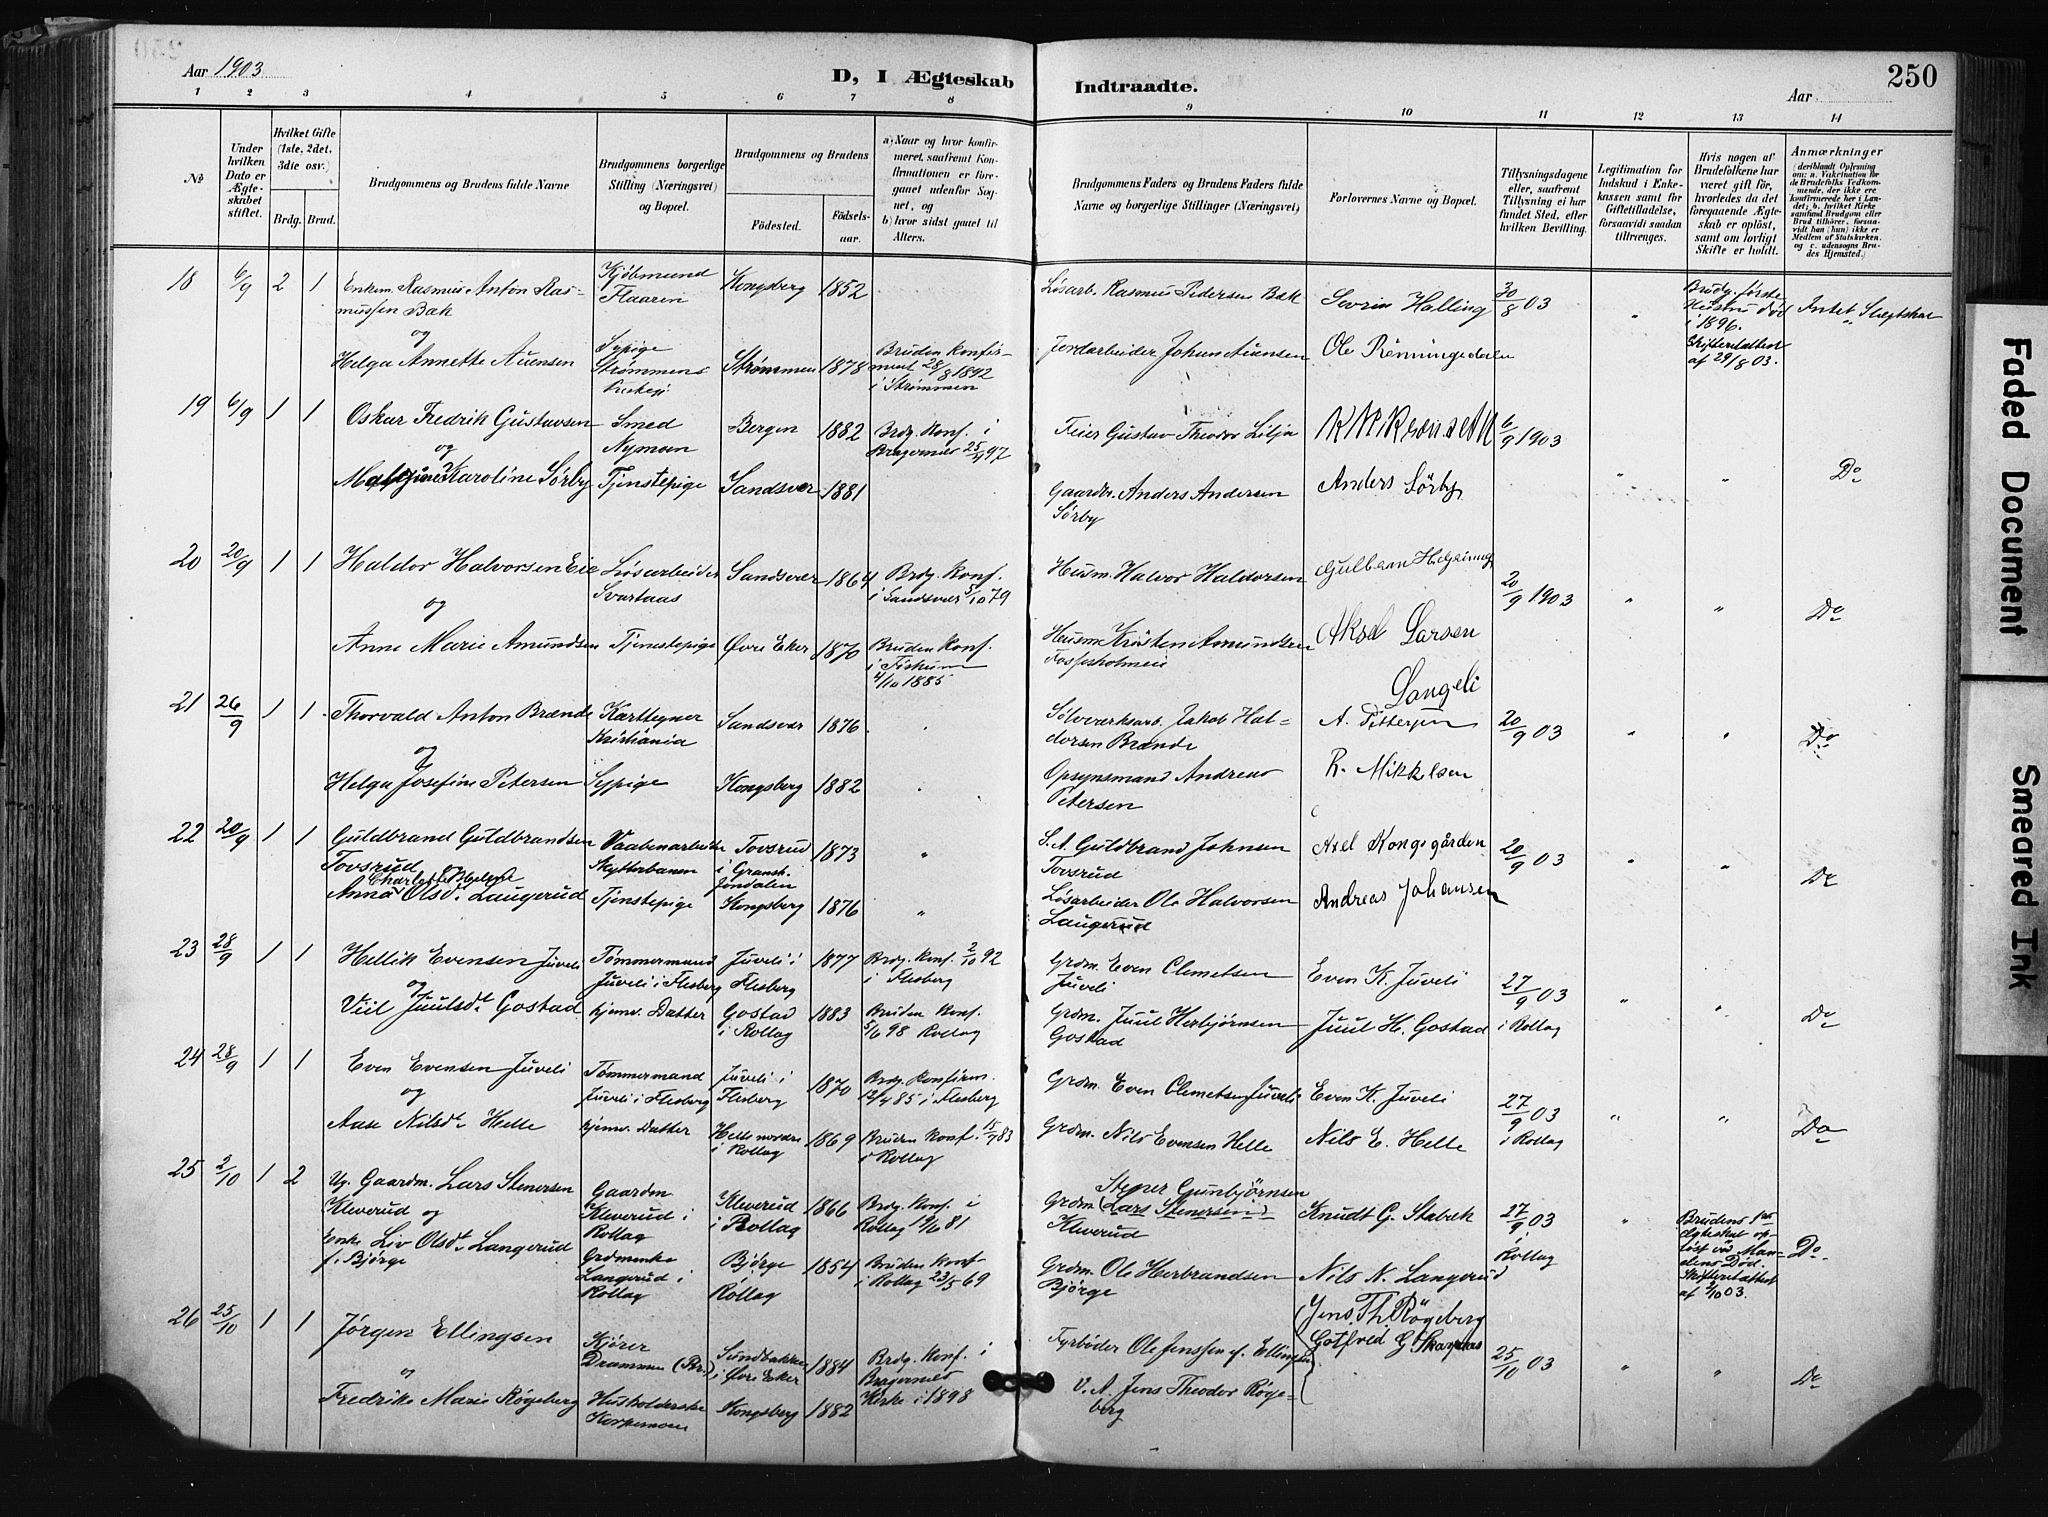 250
Aar 1903
D, I Ægteskab
Indtraadte.
Aar
1 2 3 4 5 6 7 8 9 10 11 12 13 14
№
Under hvilken Dato er Ægteskabet stiftet.
Hvilket Gifte (1ste, 2det, 3die osv.)
Brdg. Brud.
Brudgommens og Brudens fulde Navne
Brudgommens borgerlige Stilling (Næringsvei) og Bopæl.
Brudgommens og Brudens
Fødested. Fødselsaar.
a) Naar og hvor konfirmeret, saafremt Konfirmationen er foregaaet udenfor Sognet, og
b) hvor sidst gaaet til Alters.
Brudgommens Faders og Brudens Faders fulde Navne og borgerlige Stillinger (Næringsvei)
Forlovernes Navne og Bopæl.
Tillysningsdagene eller, saafremt Tillysning ei har fundet Sted, efter hvilken Bevilling.
Legitimation for Indskud i Enkekassen samt for Giftetilladelse, forsaavidt saadan tiltrænges.
Hvis nogen af Brudefolkene har været gift før, hvorledes da det foregaaende Ægteskab er opløst, samt om lovligt Skifte er holdt.
Anmærkninger
(deriblandt Oplysning om: a. Vakcination for de Brudefolks Vedkommende, der ikke ere konfirmerede her i Landet; b. hvilket Kirkesamfund Brudgom eller Brud tilhører, forsaavidt han (hun) ikke er Medlem af Statskirken, og c. udensogns Brudes Hjemsted.)
18 6/9 2 1 Enkem. Rasmus Anton Rasmussen Bak Kjøbmand Flaaren Kongsberg 1852 Løsarb. Rasmus Pedersen Bak Sevrin Halling 30/8 03 " Brudg. første Hustru død i 1896. Skifteretsattest af 29/8 03. Intet Slegtskab
og
Helga Annette Auensen Sypige Strømmens Strømmen 1878 Bruden konfirmeret 28/8 1892 i Strømmen Jordarbeider Johan Auensen Ole Rønningsdalen
19 6/9 1 1 Oskar Fredrik Gustavsen Smed Nymoen Bergen 1882 Brdg. Konf. i Bragernes 25/4 97 Feier Gustav Theodor Lilja 6/9 1903
og
Karoline Sørby Tjenstepige Sandsvær 1881 Gaardbr. Anders Andersen Sørby Anders Sørby " " Do
20 20/9 1 1 Haldor Halvorsen Eie Løsarbeider Svartaas Sandsvær 1864 Brdg. Konf. i Sandsvær 5/10 79 Husm. Halvor Haldorsen 20/9 1903 " " Do
og
Anne Marie Amundsen Tjenestepige Øvre Eker 1870 Bruden Konf. i Fiskum 4/10 1885 Husm. Kristen Amundsen Fossesholmeie Aksel Larsen Langeli
21 26/9 1 1 Thorvald Anton Brænde Karttegner Kristiania Sandsvær 1876 Sølvverksarb. Jakob Haldorsen Brænde A. Pettersen 20/9 03 " " Do
og
Helga Josefine Petersen Sypige Kongsberg 1882 Opsynsmand Andreas Petersen R. Mikkelsen
22 20/9 1 1 Guldbrand Guldbrandsen Tovsrud Vaabenarbeider Skytterbanen Tovsrud i Gransh. Jondalen 1873 " S.A. Guldbrand Johnsen Tovsrud Axel Kongsgården 20/9 03 " " Do
Anna Charlotte Olsdt. Laugerud Tjenstepige Kongsberg 1876 " Løsarbeider Ole Halvorsen Laugerud Andreas Johansen
23 28/9 1 1 Hellik Evensen Juveli Tømmermand Juveli i Flesberg Juveli i Flesberg 1877 Brdg. Konf. 2/10 92 i Flesberg Grdm. Even Clemetsen Juveli Even K. Juveli 27/9 03 i Rollag " " Do
og
Viil Juulsdt. Gostad hjemv. Datter Gostad i Rollag 1883 Bruden Konf. 5/6 98 Rollag Grdm. Juul Herbjørnsen Gostad Juul H. Gostad
24 28/9 1 1 Even Evensen Juveli Tømmermand Juveli i Flesberg Juveli i Flesberg 1870 Brdg. Konfirm. 12/4 85 i Flesberg Grdm. Even Clemetsen Juveli Even K. Juveli 27/9 03 i Rollag " " Do
og
Aase Nilsdt. Helle hjemv. Datter Helle nordre i Rollag 1869 Bruden Konf. 15/9 83 i Rollag Grdm. Nils Evensen Helle Nils E. Helle
25 2/10 1 2 Ug. Gaardm. Lars Stenersen Kleverud og Gaardm. Kleverud i Rollag Kleverud i Rollag 1866 Brdg. Konf. i Rollag 19/6 81 Grdm. Stener Gunbjørnsen (Lars Stenersen) Kleverud Knudt G. Stabæk 27/9 03 Rollag " Brudens 1ste Ægteskab opløst ved Mandens Død. Skifteretsattest af 2/10 03. Do.
Enke Liv Olsdt. Langerud f. Bjørge Grdmenke Langerud i Rollag Bjørge Rollag 1854 Bruden Konf. i Rollag 23/5 69 Grdm. Ole Herbrandsen Bjørge Nils N. Langerud
26 25/10 1 1 Jørgen Ellingsen Kjører Drammen (Br.) Sundbakken i Øvre Eker 1884 Brdg. Konf. i Bragernes Kirke i 1898 Fyrbøder Ole Jenssen Ellingsen Jens Th. Røgeberg Gotfred G. 25/10 03 " " Do
o
Fredrikke Marie Røgeberg Husholderske Korpemoen Kongsberg 1882 V.A. Jens Theodor Røgeberg
Faded Document
Smeared Ink